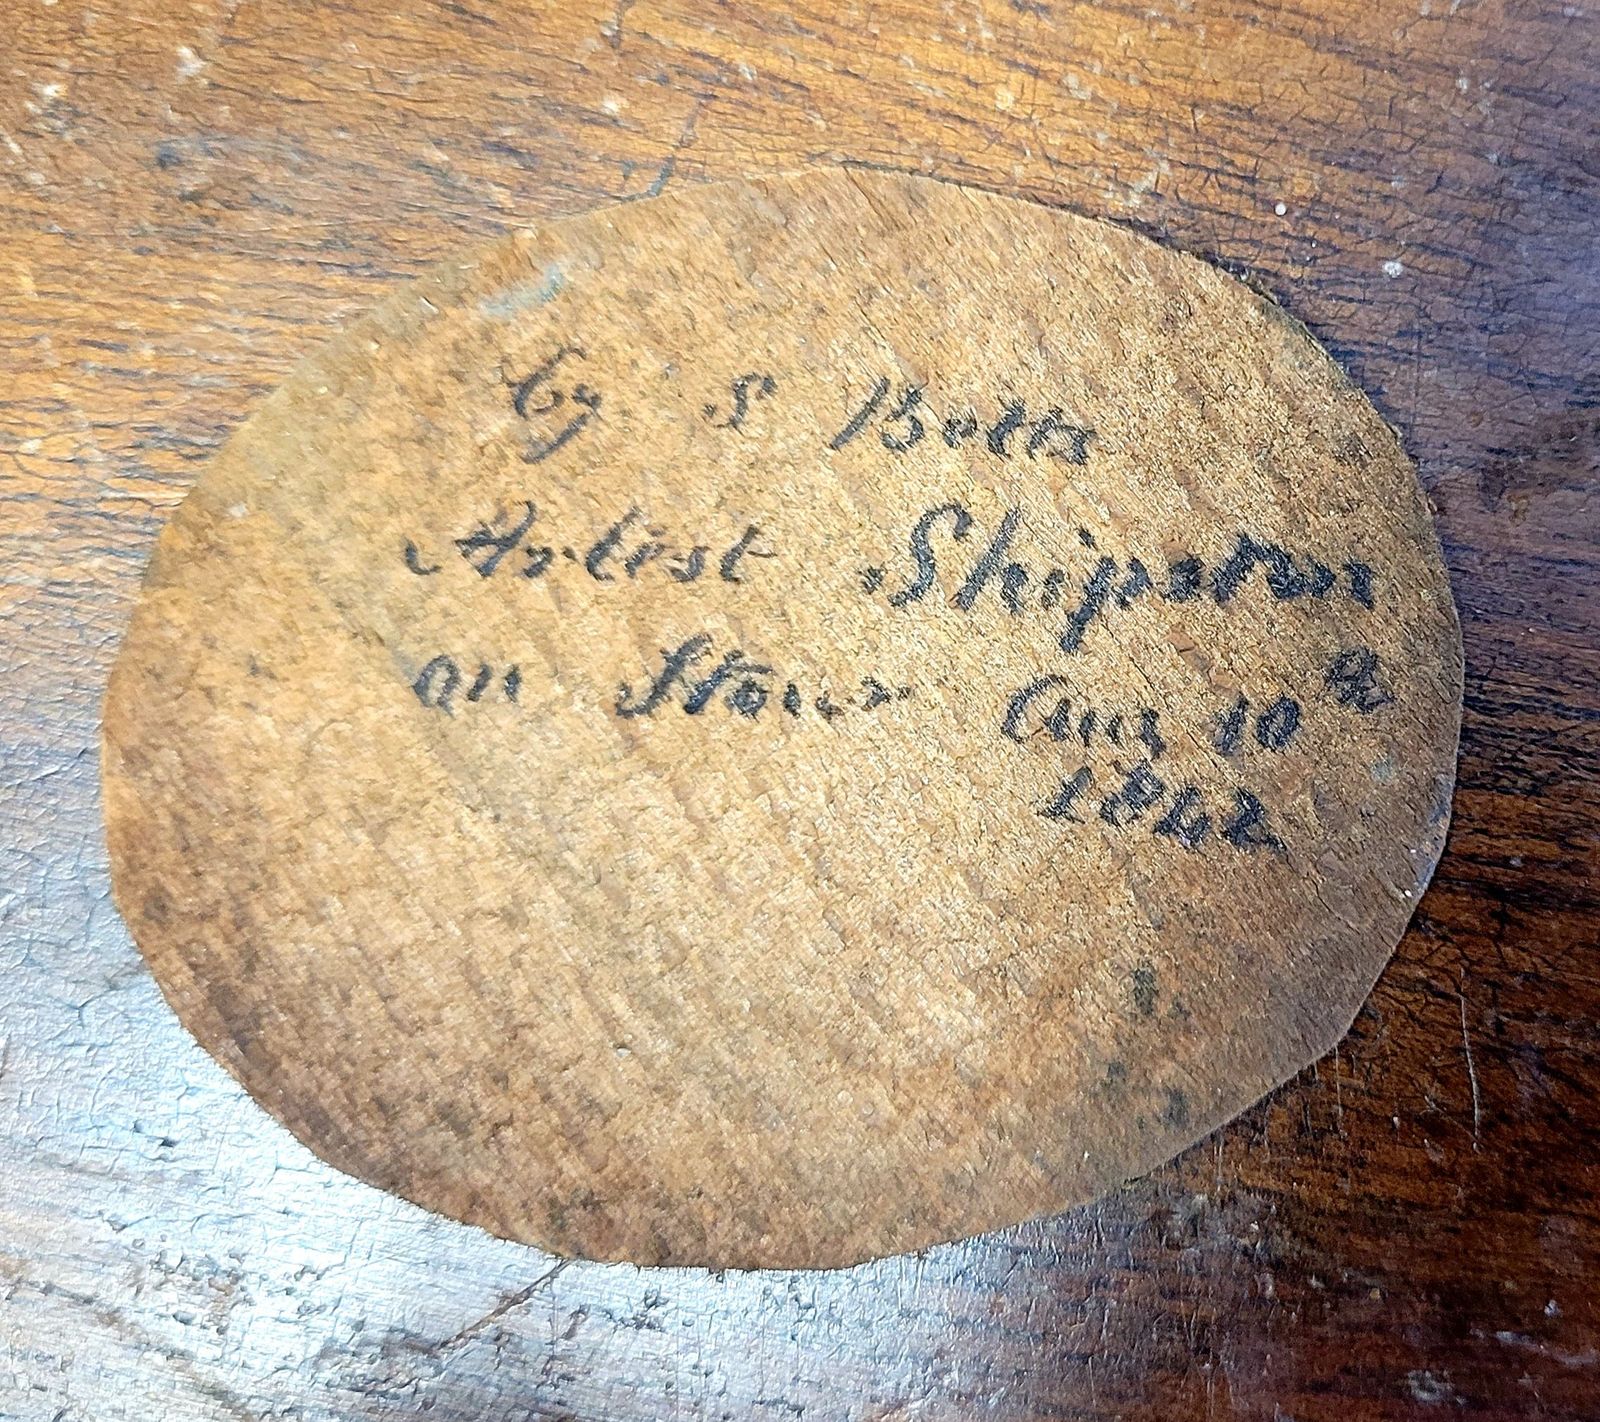 by S Betts
Artist Shipston
on Stour Aug 10th
1842